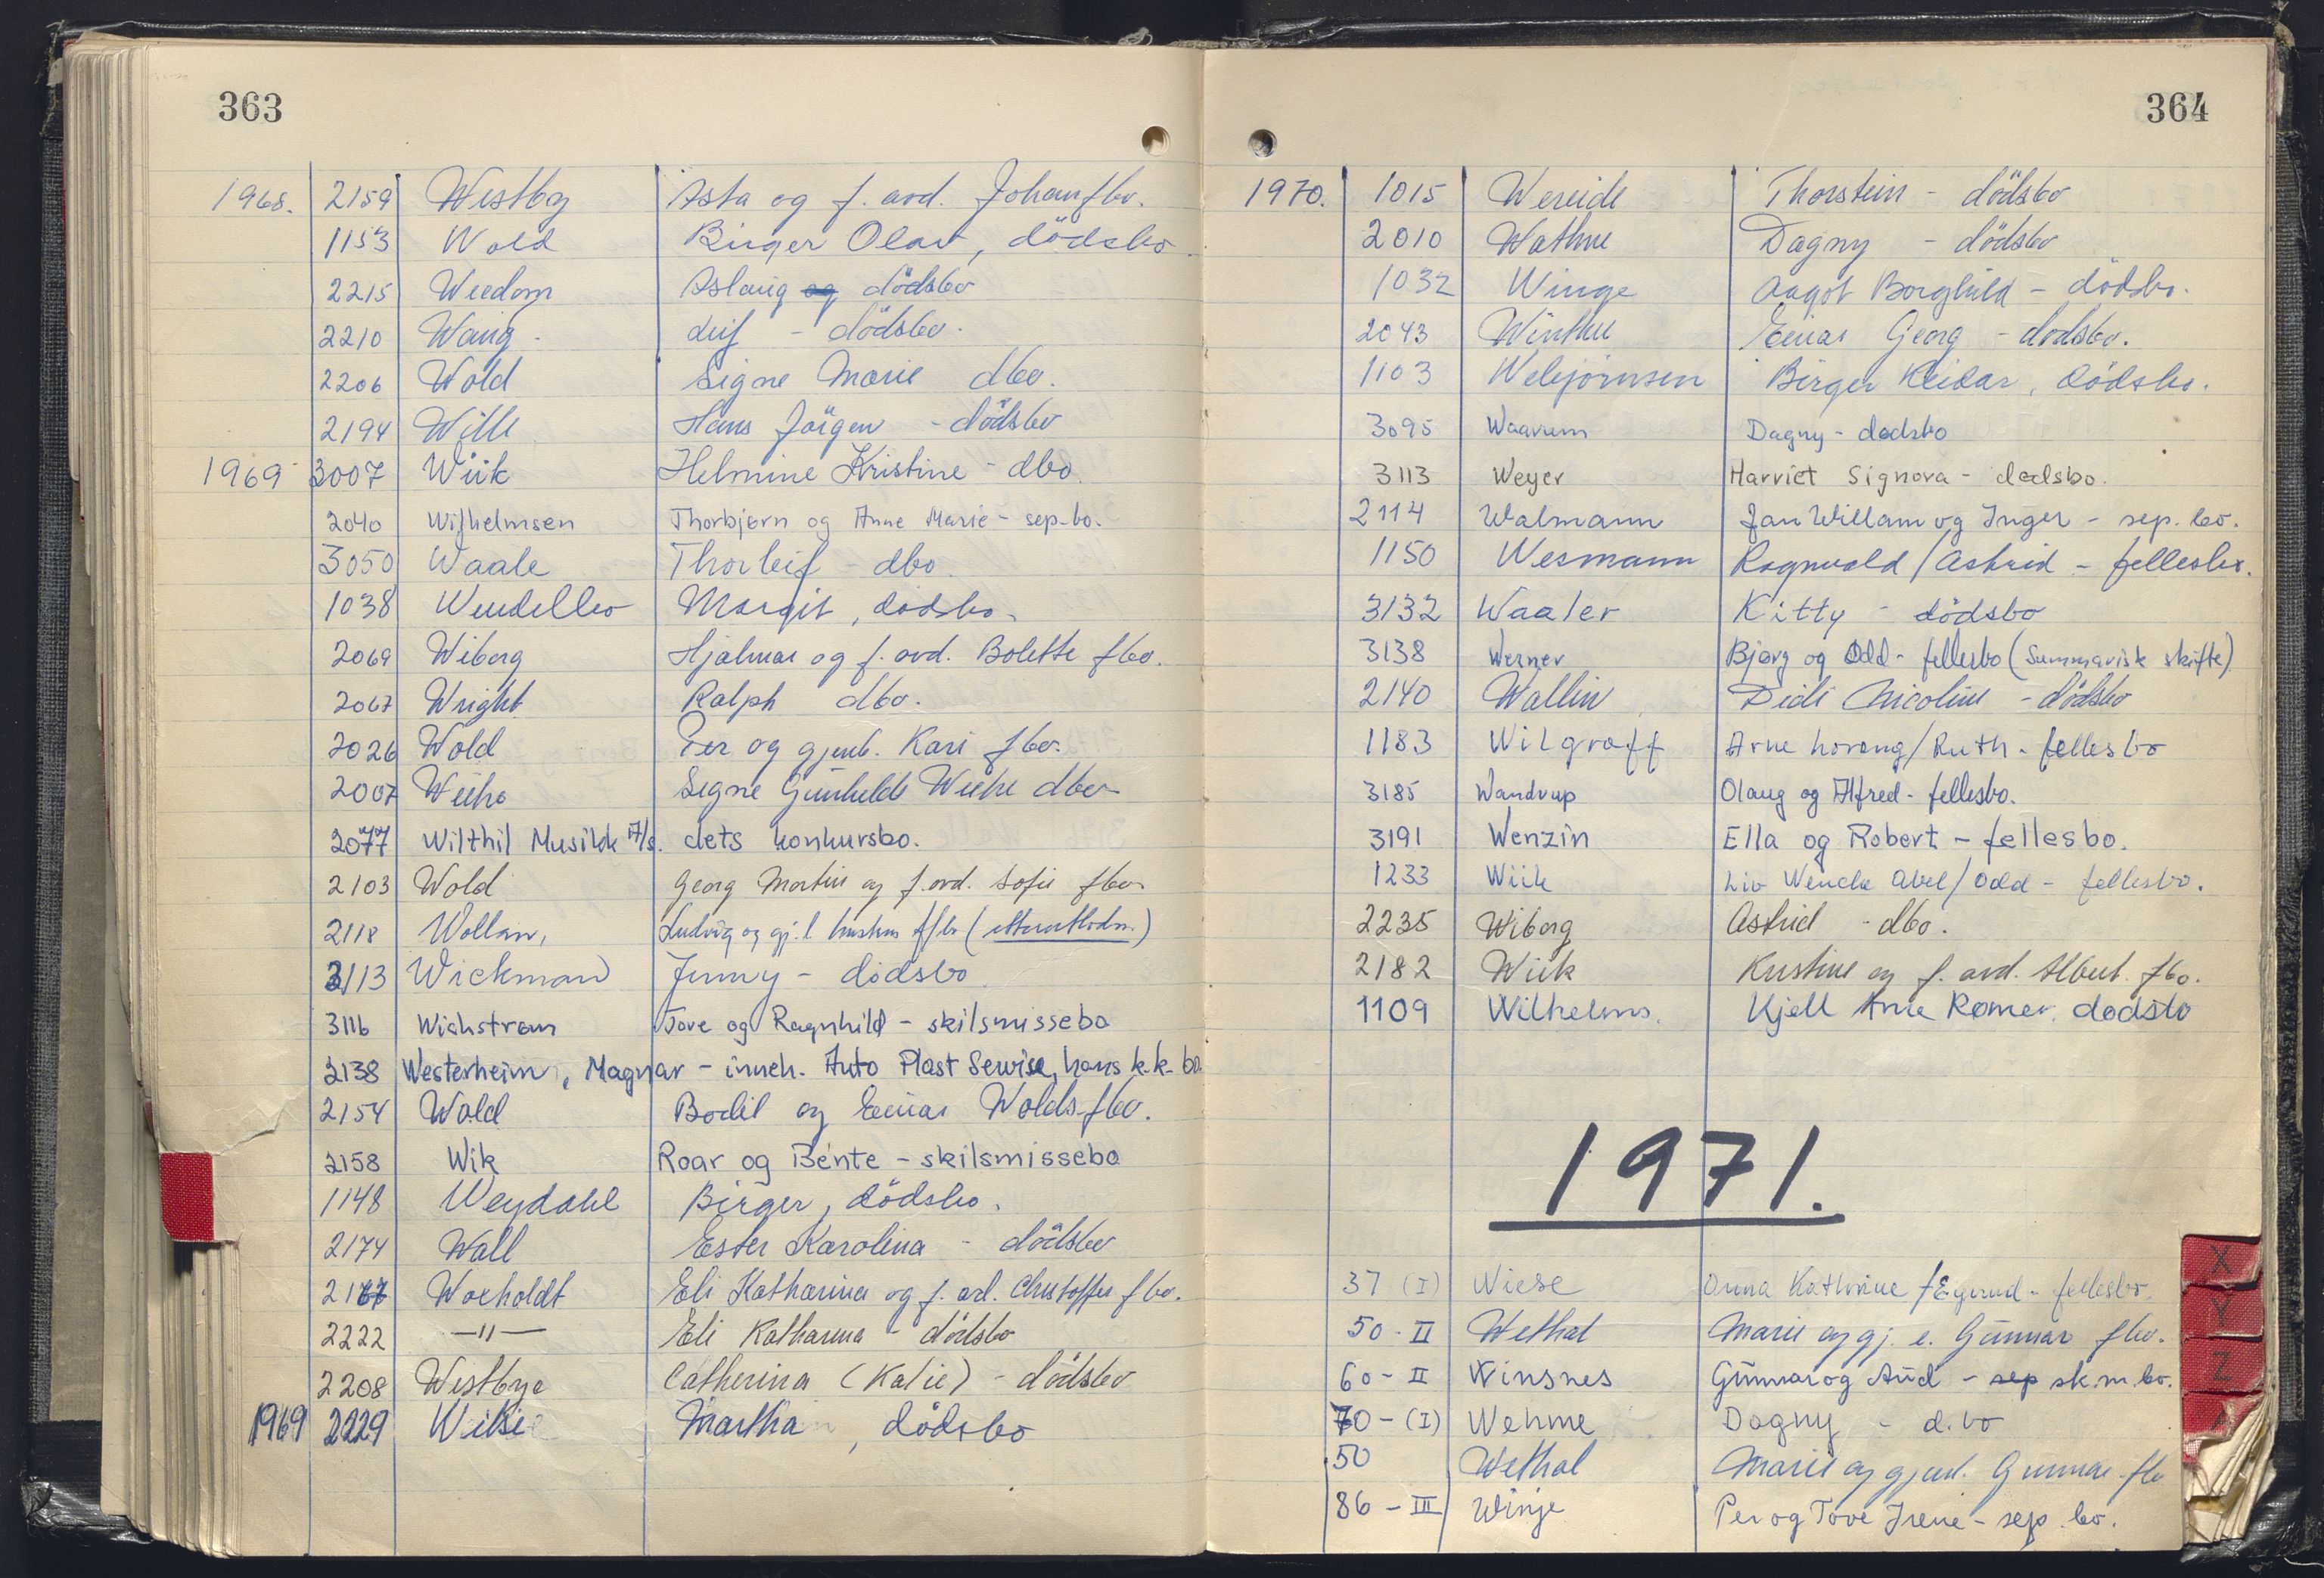 363
1968. 2159 Westby Asta og f. avd. Johan fbo.
1153 Wold Birger Olav, dödsbo.
2215 Weedom Aslaug og dödsbo
2210 Wang. Leif - dödsbo.
2206 Wold Signe Marie dbo.
2194 Wille Hans Jörgen - dödsbo
1969 3007 Wiik Helmine Kristine - dbo.
2040 Wilhelmsen Thorbjørn og Anne Marie - sep.bo.
3050 Waale Thorleif - dbo.
1038 Wendelbo Margit, dödsbo.
2069 Wiborg Hjalmar og f. avd. Bolette fbo.
2067 Wright Ralph dbo.
2026 Wold Per og gjenl. Kari fbo.
2007 Wiehe Signe Gunhilde Wiehe dbo
2077 Wilthil Musikk A/s. dets konkursbo.
2103 Wold Georg Martin og f. avd. Sofie fbo
2118 Wollan, Ludvig og gj.l. hustrus f/bo
3113 Wickman Jenny - dödsbo.
3116 Wichstrøm Tove og Ragnhild - skilsmissebo
2138 Westerheim, Magnar - inneh. Auto Plast Service, hans k.k. bo.
2154 Wold Bodil og Einar Wolds fbo.
2158 Wik Roar og Bente - skilsmissebo
1148 Weydahl Birger, dödsbo.
2174 Wall Ester Karolina - dödsbo
2167 Woxholdt Eli Katharina og f. avd. Christoffer fbo.
2222 —"— Eli Katharina - dödsbo
2208 Westbye Catherina (Katie) - dödsbo
1969 2229 Martha, dödsbo
364
1970. 1015 Wereide Thorstein - dödsbo
2010 Wathne Dagny - dödsbo
1032 Winge Aagot Borghild - dödsbo.
2043 Winther Einar Georg - dödsbo.
1103 Webjörnsen Birger Reidar, dödsbo.
3095 Waarum Dagny - dødsbo
3113 Weyer Harriet Signora - dødsbo.
2114 Walmann Jan Willam og Inger - sep. bo.
1150 Wesmann Ragnvald / Astrid - fellesbo.
3132 Waaler Kitty - dödsbo
3138 Werner Bjørg og Odd - fellesbo (Summarisk skifte)
2140 Wallin Didi Nicoline - dödsbo
1183 Wilgraff Arne Lorang / Ruth - fellesbo
3185 Wandrup Olaug og Alfred - fellesbo.
3191 Wenzin Ella og Robert - fellesbo.
1233 Wiik Liv Wencke Abel / Odd - fellesbo.
2235 Wiborg Astrid - dbo.
2182 Wiik Kristine og f. avd. Albert fbo.
1109 Wilhelms. Kjell Arne Rømer, dødsbo
1971.
37 (I) Wiese Anna Kathrine / - fellesbo.
50 - II Wethal Marie og gj. e. Gunnar fbo.
60 - II Winsnes Gunnar og Aud - sep sk.m.bo.
70 - (I) Wehme Dagny - d.bo
50 Wethal Marie og gjenl. Gunnar fbo
86 - III Winje Per og Tove Irene - sep. bo.
X
Y
Z